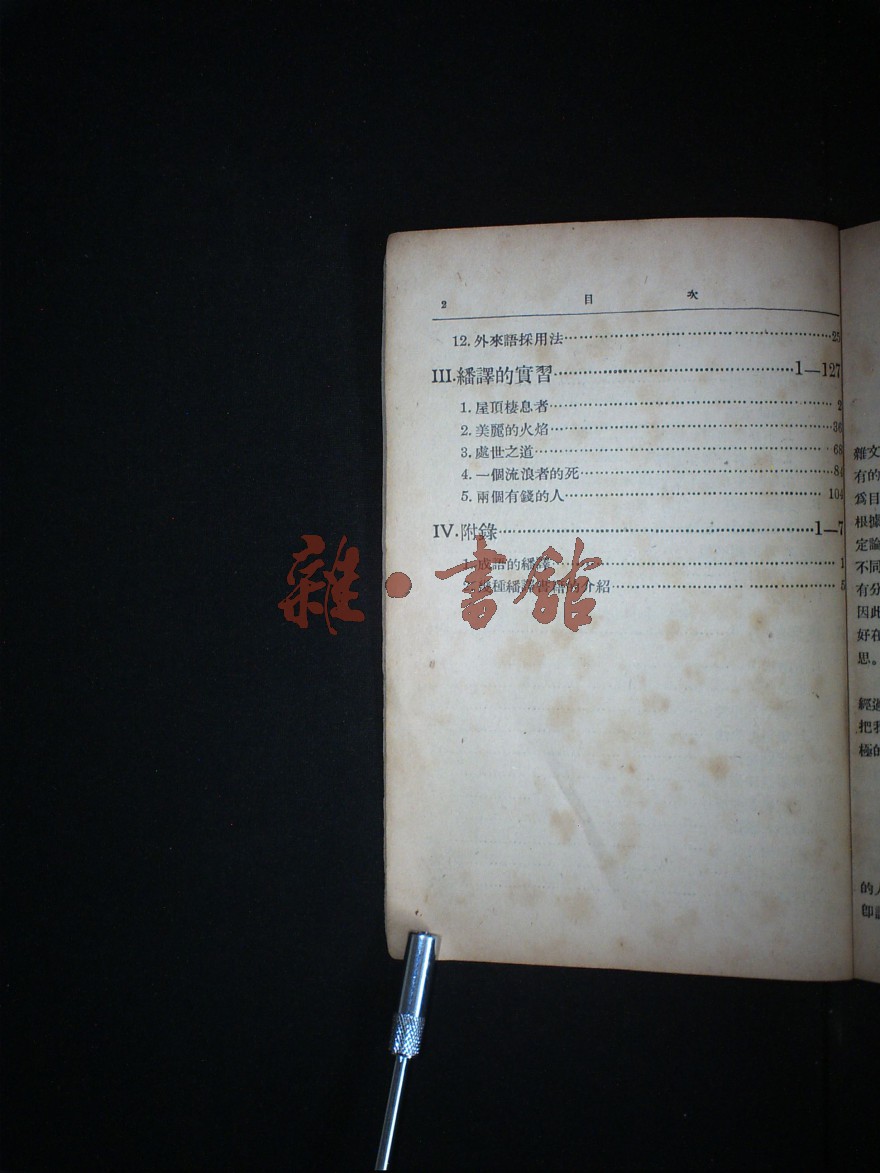 2 目 次
12. 外來語採用法 25
III. 繙譯的實習 1—127
1. 屋頂棲息者 2
2. 美麗的火焰 36
3. 處世之道 68
4. 一個流浪者的死 84
5. 兩個有錢的人 104
IV. 附錄 1—7
1. 成語的繙譯 1
2. 幾種繙譯書籍的介紹 5
雜·書館
雜文
有的
爲目
根據
定論
不同
有分
因此
好在
思。
經過
把我
極的
的人
卽